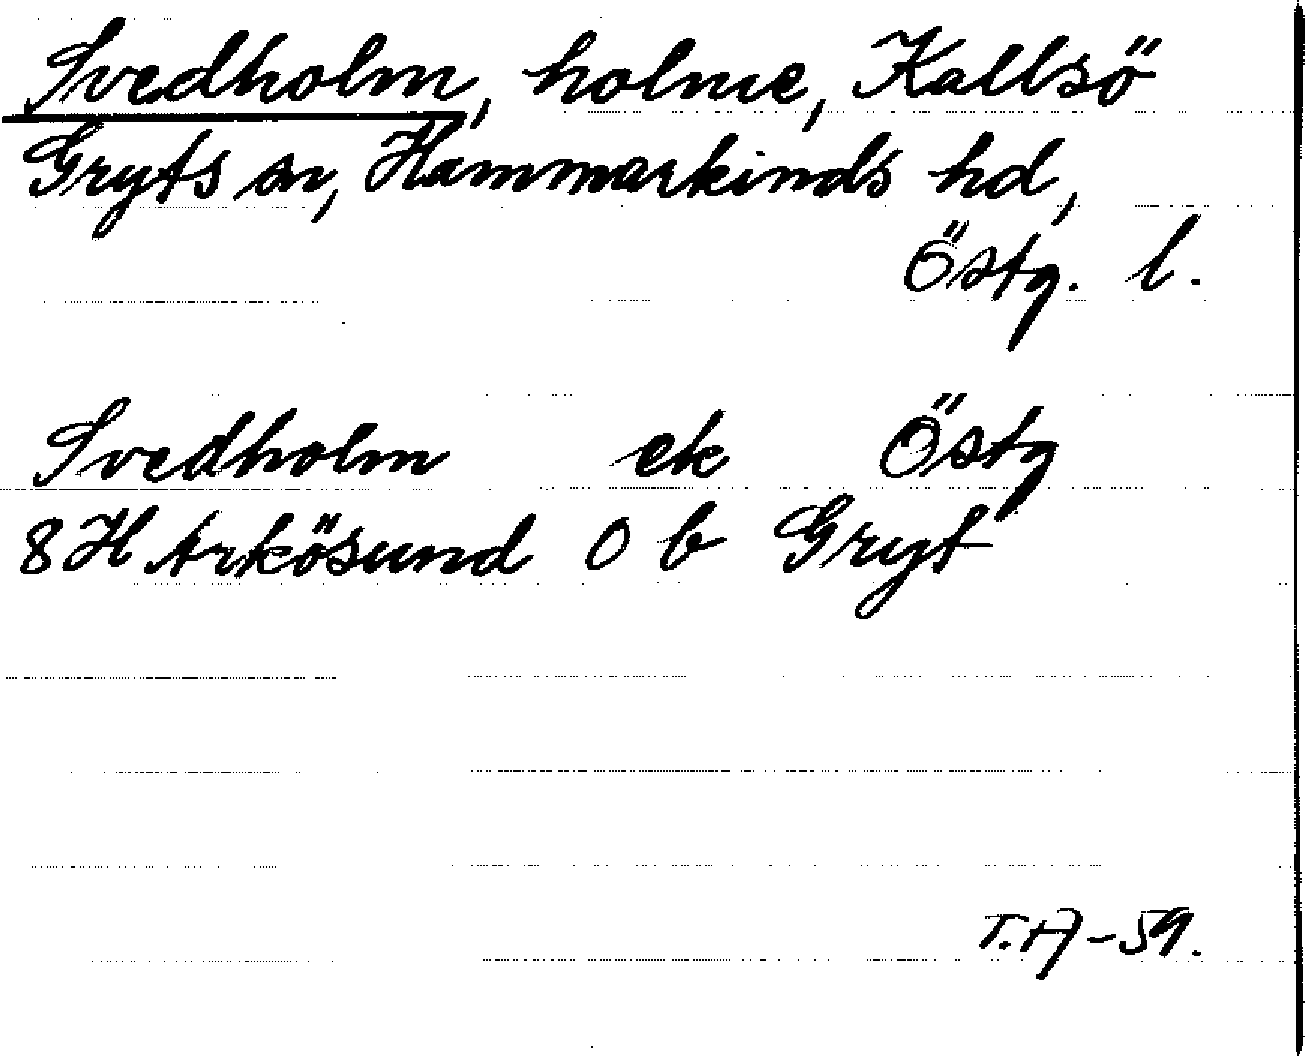 Svedholm, holme, Kallsö
Gryts sn, Hammarkinds hd,
Östg. l.
Svedholm ek Östg
8H Arkösund O b Gryt
T.A-59.